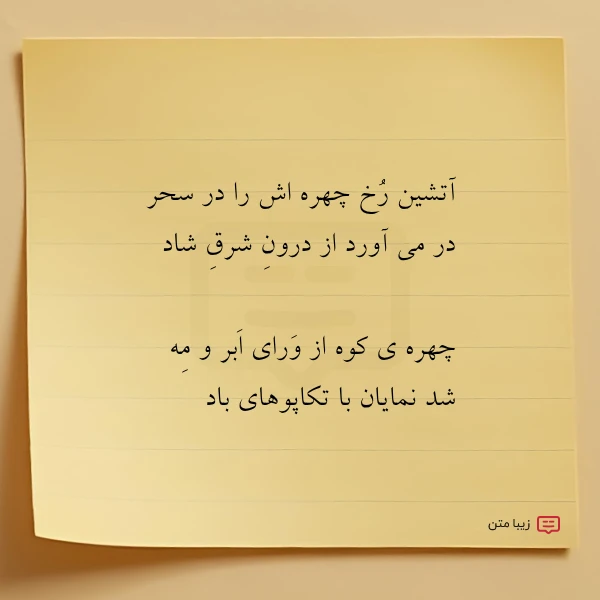 آتشین رُخ چهره اش را در سحر
در می آورد از درونِ شرقِ شاد
چهره ی کوه از وَرای اَبر و مِه
شد نمایان با تکاپوهای باد
زیبا متن